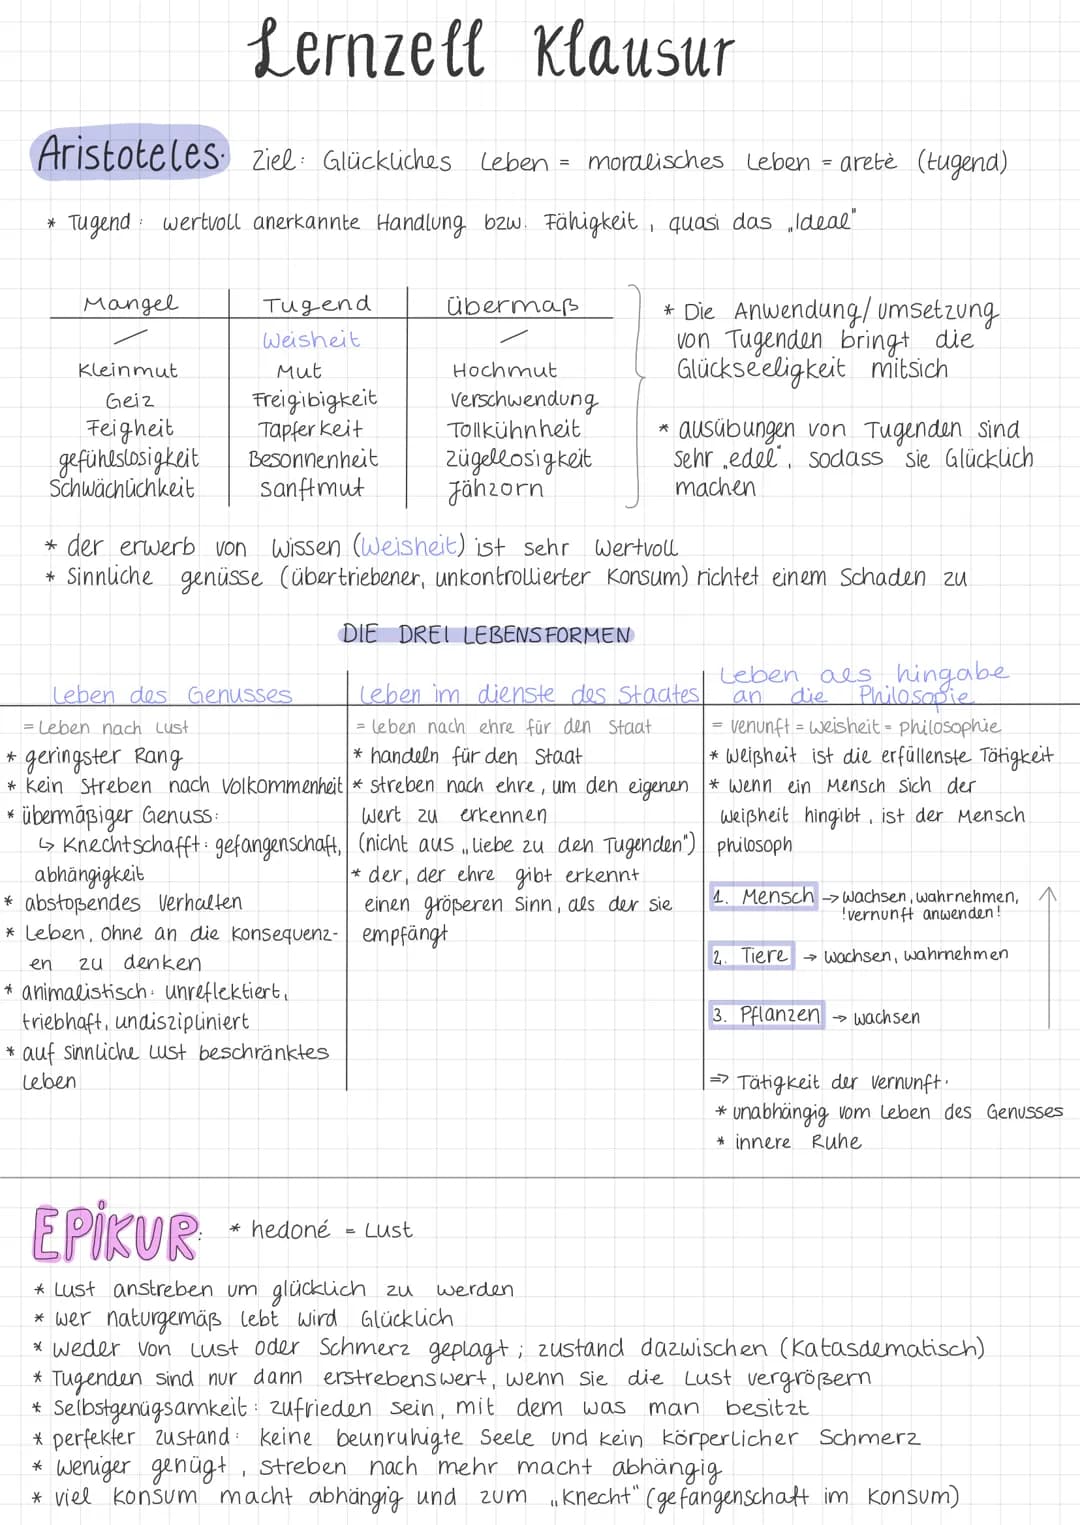 Lernzell Klausur
Aristoteles: Ziel: Glückliches Leben = moralisches Leben = aretè (tugend)
* Tugend: wertvoll anerkannte Handlung bzw. Fähigkeit, quasi das „Ideal"
Mangel Tugend Übermaß
/ Weisheit /
Kleinmut Mut Hochmut
Geiz Freigibigkeit Verschwendung
Feigheit Tapferkeit Tollkühnheit
gefühlslosigkeit Besonnenheit Zügellosigkeit
Schwächlichkeit Sanftmut Jähzorn
* Die Anwendung/Umsetzung
von Tugenden bringt die
Glückseeligkeit mitsich
* ausübungen von Tugenden sind
sehr „edel", sodass sie Glücklich
machen
* der erwerb von Wissen (Weisheit) ist sehr Wertvoll
* Sinnliche genüsse (übertriebener, unkontrollierter Konsum) richtet einem Schaden zu
DIE DREI LEBENSFORMEN
Leben des Genusses
= Leben nach Lust
* geringster Rang
* kein Streben nach Volkommenheit
* übermäßiger Genuss:
↳ Knechtschafft: gefangenschaft,
abhängigkeit
* abstoßendes Verhalten
* Leben, ohne an die konsequenz-
en zu denken
* animalistisch: unreflektiert,
triebhaft, undiszipliniert
* auf sinnliche Lust beschränktes
Leben
Leben im dienste des Staates
= leben nach ehre für den Staat
* handeln für den Staat
* streben nach ehre, um den eigenen
Wert zu erkennen
(nicht aus „liebe zu den Tugenden")
* der, der ehre gibt erkennt
einen größeren Sinn, als der sie
empfängt
Leben als hingabe
an die Philosopie
= venunft = weisheit = philosophie
* weißheit ist die erfüllenste Tätigkeit
* wenn ein Mensch sich der
weißheit hingibt, ist der Mensch
philosoph
1. Mensch → wachsen, wahrnehmen,
!vernunft anwenden!
2. Tiere → wachsen, wahrnehmen
3. Pflanzen → wachsen
=> Tätigkeit der vernunft:
* unabhängig vom Leben des Genusses
* innere Ruhe
EPIKUR: * hedoné = Lust
* Lust anstreben um glücklich zu werden
* wer naturgemäß lebt wird Glücklich
* weder von Lust oder Schmerz geplagt; zustand dazwischen (Katasdematisch)
* Tugenden sind nur dann erstrebenswert, wenn sie die Lust vergrößern
* Selbstgenügsamkeit: zufrieden sein, mit dem was man besitzt
* perfekter zustand: keine beunruhigte Seele und kein körperlicher Schmerz
* weniger genügt, streben nach mehr macht abhängig
* viel konsum macht abhängig und zum „Knecht" (gefangenschaft im Konsum)